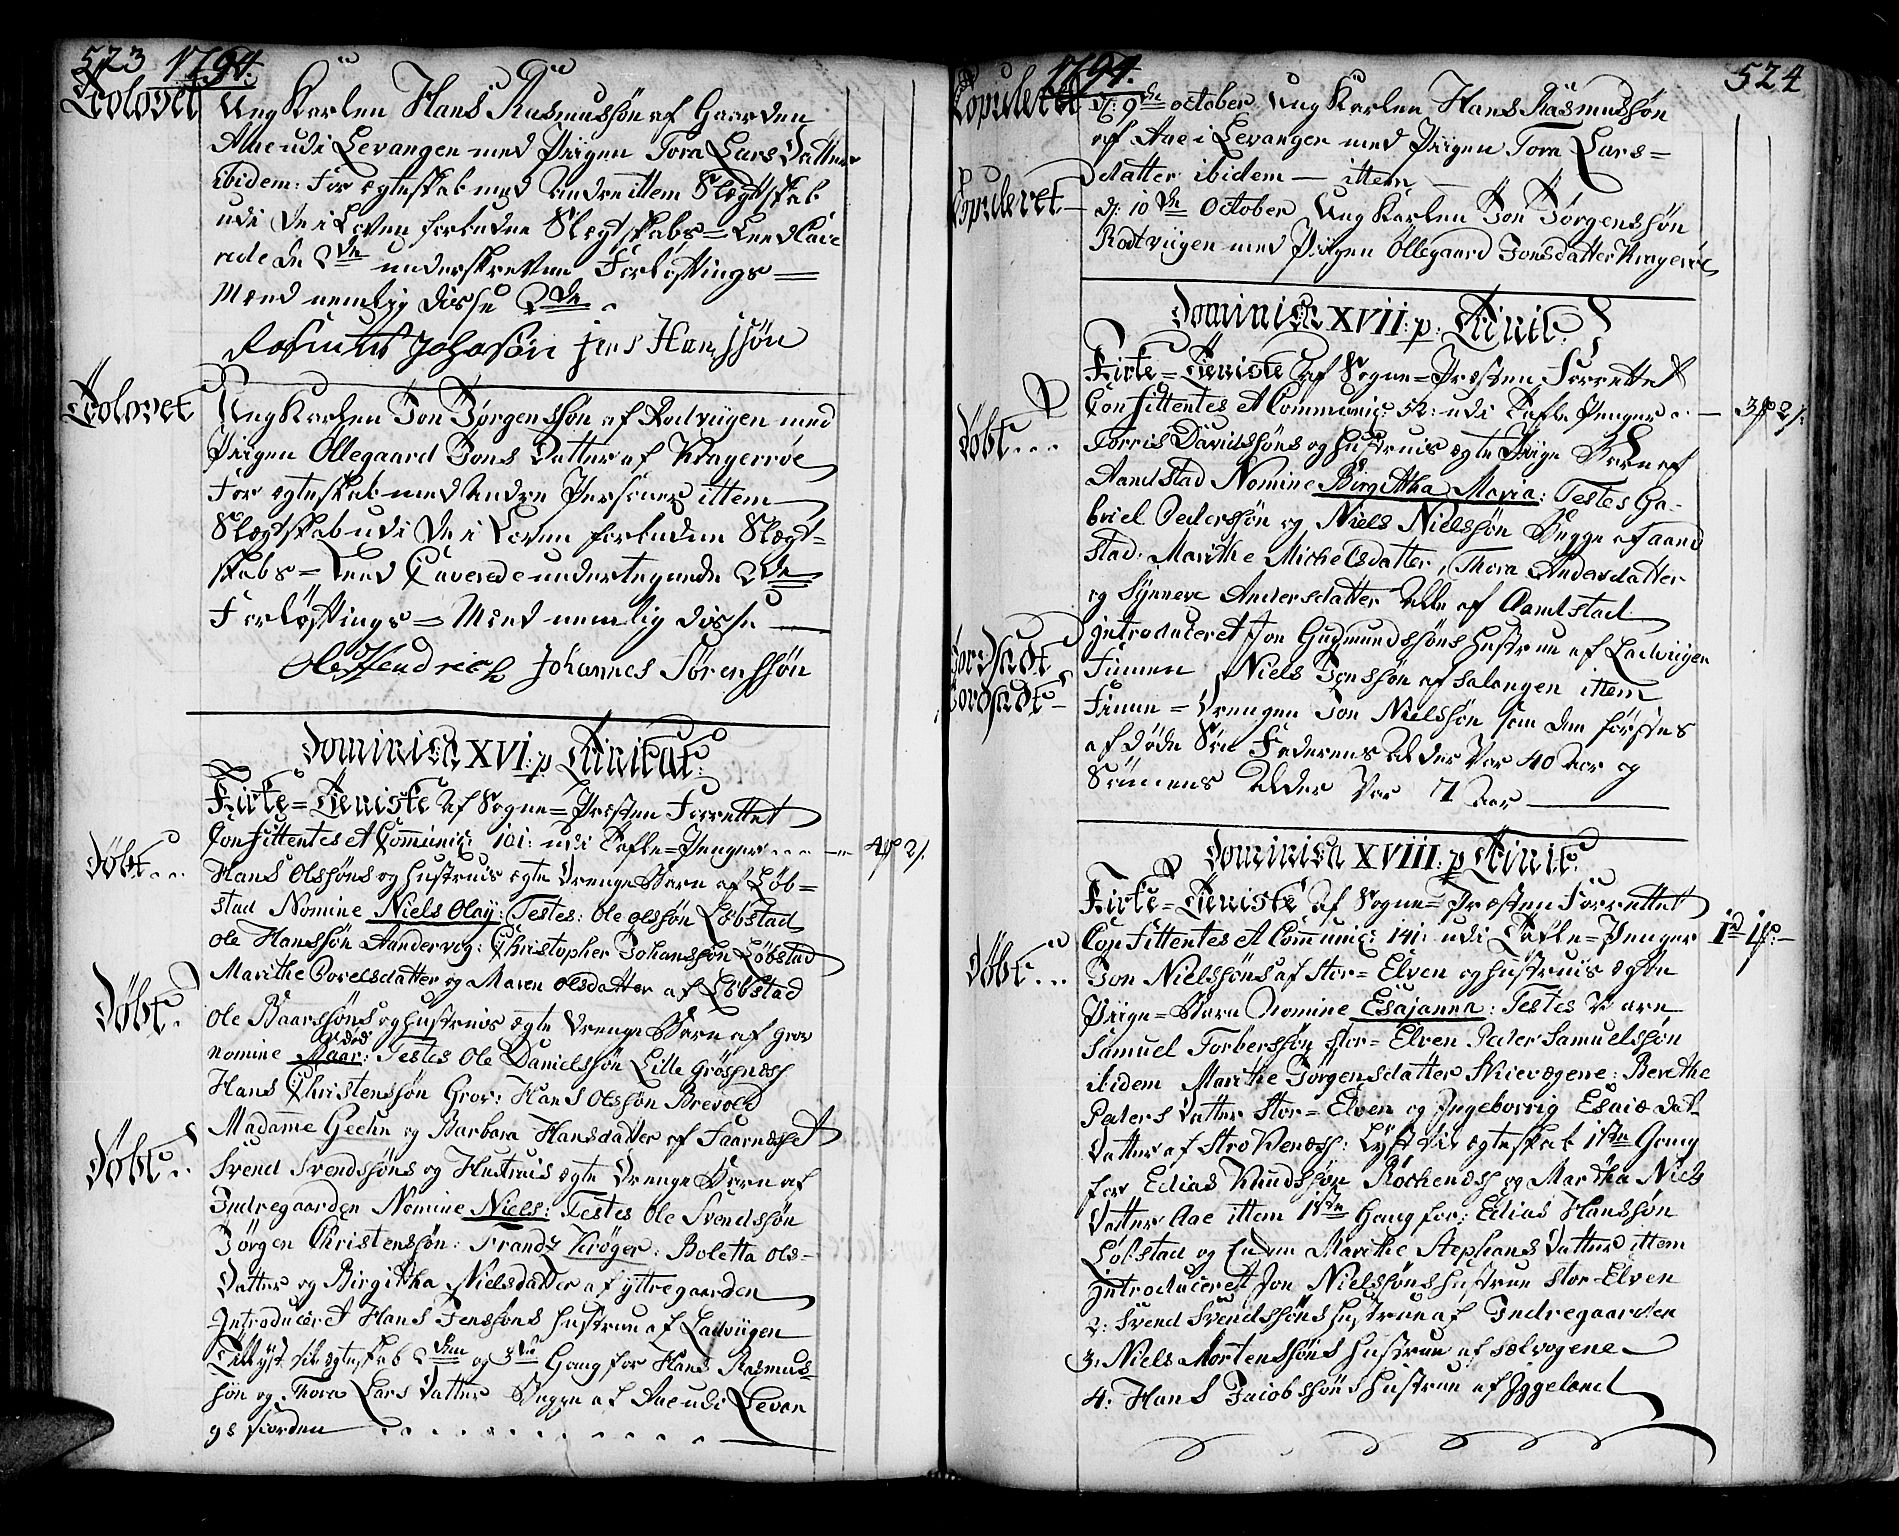 523 1794.
Trolovet Ung Karlen Hans Rasmussøn af Gaarden
Aae udi Levangen med Piigen Tora Lars Datter
ibidem: For ægteskab med Andre ittem Slægtskab
udi de i Loven forbudne Slegtskabs= Leed Cave
rede de 2de underskrevne Forløftnings=
Mænd nemlig disse 2de.
Rasmus Johansøn Jens Hanssøn
Trolovet Ung Karlen Jon Jørgenssøn af Rodviigen med
Piigen Ollegaard Jons Datter af Kragerröe
For ægteskab med Andre Personer ittem
Slægtskab udi de i Loven forbudne Slægt=
skabs= Leed Caverede undertegnede 2de
Forløftnings= Mænd nemlig disse
Ole Hendrich Johannes Sörenssøn
Dominica XVI: p Trinitat:
Kirke=Tieniste Af Sogne=Præsten Forrettet
Confittentes et Communic: 101: udi Tafle=Penger... 4 2/.
Døbt... Hans Olssøns og Hustrues ægte Drenge Barn af Løb=
stad Nomine Niels Olay: Testes: Ole Olssøn Løbstad
Ole Hanssøn Aandervog: Christopher Johanssøn Løbstad
Marithe Povelsdatter og Maren Olsdatter af Løbstad
Døbt. Ole Baarssøns og Hustrues ægte Drenge Barn af Grov
Nomine Baar: Testes Ole Danielssøn Lille
Hans Christenssøn Grov: Hans Olssøn Brevold
Madamme Geehn og Barbara Hansdatter af Faarnesset
Døbt.. Svend Svendssøns og Hustrues ægte Drenge Barn af
Indregaarden Nomine Niels: Testes Ole Svendssøn
Jörgen Christenssøn: Frandz Kröger: Boletta Ols-
Datter og Birgittha Nielsdatter af Yttregaarden
Introduceret Hans Jenssøns Hustrue af Ladviigen
Tillyst til ægteskab 2den og 3die Gang for Hans Rasmus-
søn og Thora Lars Datter Begge af Aae udi Levan
gs fiorden
1794. 524
Copuleret d: 9de October Ung Karlen Hans Rasmussøn
af Aae i Levangen med Piigen Tora Lars=
datter ibidem — ittem
Copuleret d: 10de October Ung Karlen Jon Jørgenssøn
Rodtviigen med Piigen Ollegaard Jonsdatter Kragerøe
Dominica XVII: p: Trinit:
Kirke=Tieniste Af Sogne=Præsten Forrettet
Confittentes et Communic: 52: udi Tafle Penger.. 3 2/.
Døbt... Torris Davidssøns og Hustrues ægte Piige Barn af
Aandstad Nomine Birgittha Maria: Testes Ga-
briel Pederssøn og Niels Nielssøn Begge af Aand
stad: Marithe Michelsdatter, Thora Andersdatter
og Synneve Andersdatter Alle af Aandstad
Introduceret Jon Gudmundssøns Hustrue af Ladviigen
Jordsadt Finnen Niels Jonssøn af Salangen ittem
Jordsadt Finne=Drengen Jon Nielssøn som den førstes
af døde Søn Faderens Alder Var 40 Aar og
Sønnens Alder Var 7 Aar
Dominica XVIII: p Trinit:
Kirke=Tieniste Af Sogne=Præsten Forrettet
Confittentes et Communic: 141: udi Tafle=Penger
Døbt... Jon Nielssøns af Stor=Elven og Hustrues ægte
Piige=Barn Nomine Esajanna: Testes Vare
Samuel Torberssøn Stor=Elven Peder Samuelssøn
ibidem Marithe Jørgensdatter Skievogene: Berithe
Peders Datter Stor=Elven og Ingeborrig Esaiæ Dat-
Datter af Strokenæss: Lyst til ægteskab 1ste Gang
for Elias Knudssøn Rochenæss og Martha Niels
Datter Aae ittem 1ste Gang for: Elias Hanssøn
Løbstad og Marithe Stephans Datter ittem
Introduceret Jon Nielssøns Hustrue Stor-Elven
2: Svend Svendssøns Hustrue af Indregaarden
3. Niels Mortenssøns Hustrue af Sælvogene
4: Hans Jacobssøns Hustrue af Iggeland